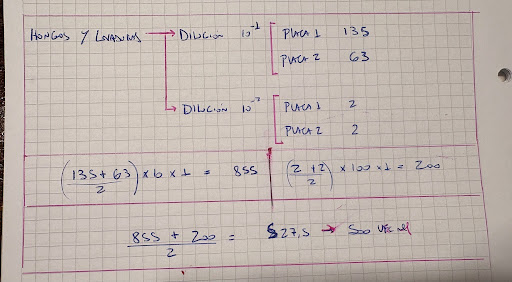 HONGOS Y LEVADURAS → DILUCIÓN 10⁻¹ [ PLACA 1 135
PLACA 2 63
DILUCIÓN 10⁻² [ PLACA 1 2
PLACA 2 2
(135 + 63 / 2) x 6 x 1 = 855 | (2 + 2 / 2) x 100 x 1 = 200
855 + 200 / 2 = 527,5 → 500 UFC